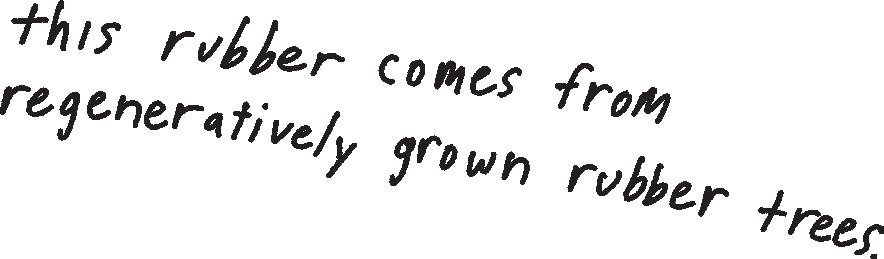 this rubber comes from
regeneratively grown rubber trees.